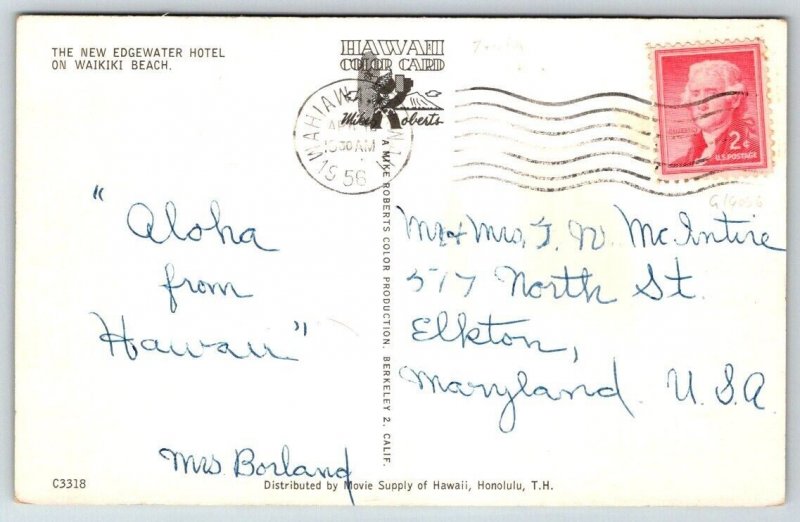 THE NEW EDGEWATER HOTEL
ON WAIKIKI BEACH.
HAWAII
COLOR CARD
Mike Roberts
WAHIAWA
10 30 AM
1956
2¢
U.S. POSTAGE
"Aloha
from
Hawaii"
Mrs Borland
A MIKE ROBERTS COLOR PRODUCTION. BERKELEY 2, CALIF.
Mr + Mrs. J. W. McIntire
517 North St.
Elkton,
Maryland. U.S.A.
C3318
Distributed by Movie Supply of Hawaii, Honolulu, T.H.